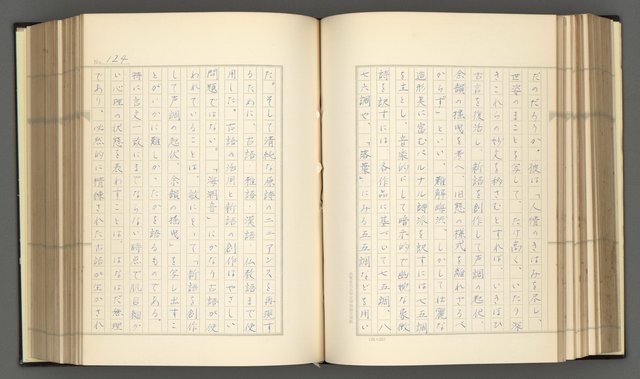 だのだろうか。彼は、「人情のきはみを尽し、
世姿のまことを写して、たけ高く、いたり深
きこれらの妙文を移さむとすれば、いきほひ
古言を復活し、新語を創作して声調の起伏、
余韻の揺曳を考へ、旧態の様式を離れざるべ
からず」といい、難解晦渋、しかして壮麗な
造形美に富むパルナル詩派を訳すには七五調
を主とし、音楽的にして暗示的で幽婉な象徴
詩を訳すには、各作品に基づいて七五調、八
七六調や、「落葉」にみる五五調などを用い
No. 124
た。そして清純な原語のニュアンスを再現す
るために、古語・雅語・漢語・仏教語まで使
用した。古語の活用と新語の創作はやさしい
問題ではない。「海潮音」にかなり古語が使
われていることは、敏にとって「新語を創作
して声調の起伏、余韻の揺曳」を写し出すこ
とがいかに難しかったかを語るものである。
特に言文一致にまでならない時点で肌目細か
い心理の状態を表わすことは、はなはだ無理
であり、必然的に精練された古語が生かされ